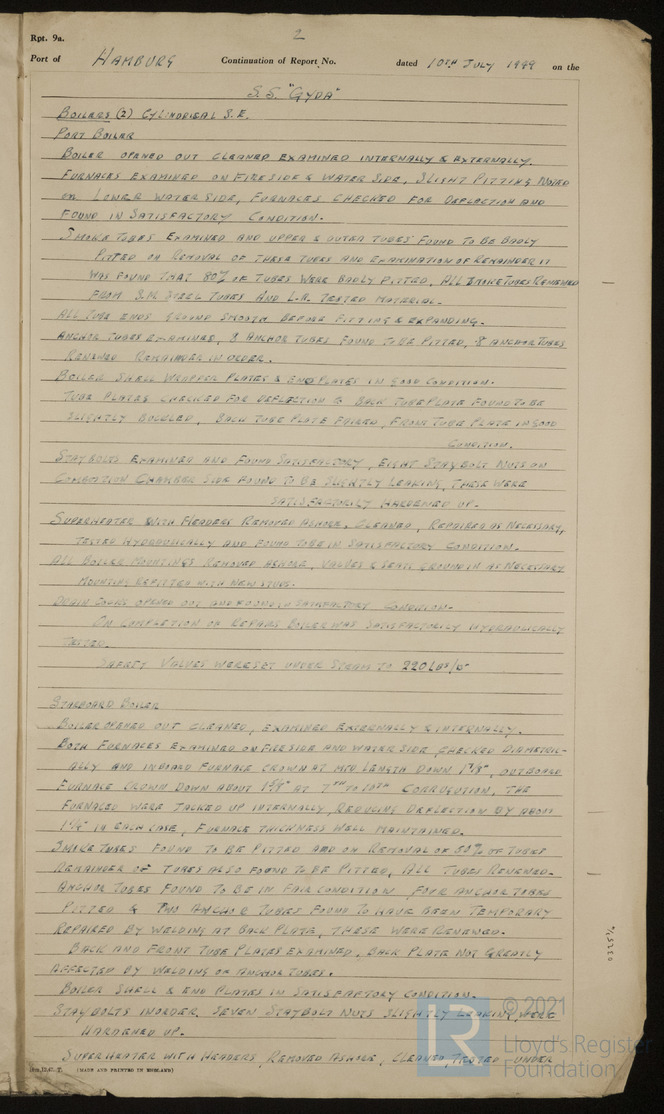 Rpt. 9a.
2
Port of HAMBURG Continuation of Report No. dated 10TH JULY 1949 on the
S.S. "GYDA"
BOILERS (2) CYLINDRICAL S.E.
PORT BOILER
BOILER OPENED OUT CLEANED EXAMINED INTERNALLY & EXTERNALLY.
FURNACES EXAMINED ON FIRESIDE & WATER SIDE, SLIGHT PITTING NOTED
ON LOWER WATERSIDE, FURNACES CHECKED FOR DEFLECTION AND
FOUND IN SATISFACTORY CONDITION.
SMOKE TUBES EXAMINED AND UPPER & OUTER TUBES FOUND TO BE BADLY
PITTED ON REMOVAL OF THESE TUBES AND EXAMINATION OF REMAINDER IT
WAS FOUND THAT 80% OF TUBES WERE BADLY PITTED, ALL SMOKE TUBES RENEWED
FROM S.M. STEEL TUBES AND L.R. TESTED MATERIAL.
ALL TUBE ENDS GROUND SMOOTH BEFORE FITTING & EXPANDING.
ANCHOR TUBES EXAMINED, 8 ANCHOR TUBES FOUND TO BE PITTED, 8 ANCHOR TUBES
RENEWED REMAINDER IN ORDER.
BOILER SHELL WRAPPER PLATES & END PLATES IN GOOD CONDITION.
TUBE PLATES CHECKED FOR DEFLECTION & BACK TUBE PLATE FOUND TO BE
SLIGHTLY BUCKLED, BACK TUBE PLATE FAIRED, FRONT TUBE PLATE IN GOOD
CONDITION.
STAYBOLTS EXAMINED AND FOUND SATISFACTORY, EIGHT STAYBOLT NUTS ON
COMBUSTION CHAMBER SIDE FOUND TO BE SLIGHTLY LEAKING, THESE WERE
SATISFACTORILY HARDENED UP.
SUPERHEATER WITH HEADERS REMOVED ASHORE, CLEANED, REPAIRED AS NECESSARY,
TESTED HYDRAULICALLY AND FOUND TO BE IN SATISFACTORY CONDITION.
ALL BOILER MOUNTINGS REMOVED ASHORE, VALVES & SEATS GROUND IN AS NECESSARY
MOUNTING REFITTED WITH NEW STUDS.
DRAIN COCKS OPENED OUT AND FOUND IN SATISFACTORY CONDITION.
ON COMPLETION OF REPAIRS BOILER WAS SATISFACTORILY HYDRAULICALLY
TESTED.
SAFETY VALVES WERE SET UNDER STEAM TO 220 LBS/□"
STARBOARD BOILER
BOILER OPENED OUT CLEANED, EXAMINED EXTERNALLY & INTERNALLY.
BOTH FURNACES EXAMINED ON FIRESIDE AND WATERSIDE, CHECKED DIAMETRIC-
ALLY AND INBOARD FURNACE CROWN AT MID LENGTH DOWN OUTBOARD
FURNACE CROWN DOWN ABOUT AT 7TH TO 10TH CORRUGATION, THE
FURNACES WERE JACKED UP INTERNALLY, REDUCING DEFLECTION BY ABOUT
IN EACH CASE, FURNACE THICKNESS WELL MAINTAINED.
SMOKE TUBES FOUND TO BE PITTED AND ON REMOVAL OF 50% OF TUBES
REMAINDER OF TUBES ALSO FOUND TO BE PITTED, ALL TUBES RENEWED.
ANCHOR TUBES FOUND TO BE IN FAIR CONDITION FOUR ANCHOR TUBES
PITTED & TWO ANCHOR TUBES FOUND TO HAVE BEEN TEMPORARY
REPAIRED BY WELDING AT BACK PLATE, THESE WERE RENEWED.
BACK AND FRONT TUBE PLATES EXAMINED, BACK PLATE NOT GREATLY
AFFECTED BY WELDING OF ANCHOR TUBES.
BOILER SHELL & END PLATES IN SATISFACTORY CONDITION.
STAYBOLTS IN ORDER. SEVEN STAYBOLT NUTS SLIGHTLY LEAKING, WERE
HARDENED UP.
SUPERHEATER WITH HEADERS, REMOVED ASHORE, CLEANED, TESTED UNDER
(MADE AND PRINTED IN ENGLAND)
LR
© 2021
Lloyd's Register
Foundation